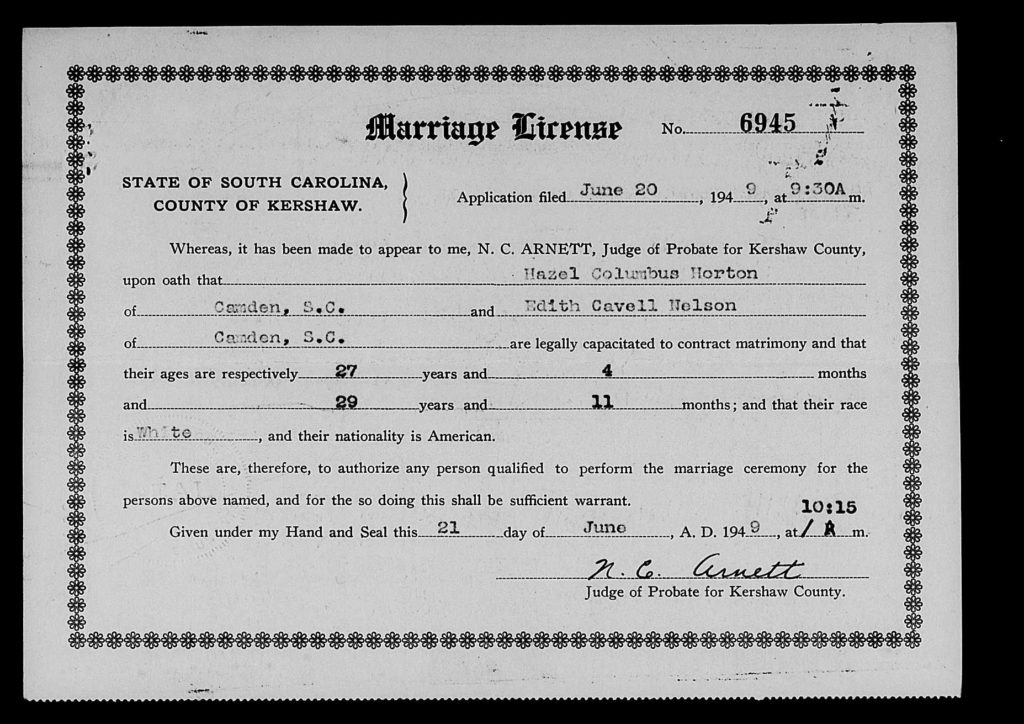 Marriage License No. 6945
STATE OF SOUTH CAROLINA,
COUNTY OF KERSHAW.
Application filed June 20, 1949, at 9:30A m.
Whereas, it has been made to appear to me, N. C. ARNETT, Judge of Probate for Kershaw County,
upon oath that Hazel Columbus Horton
of Camden, S.C. and Edith Cavell Nelson
of Camden, S.C. are legally capacitated to contract matrimony and that
their ages are respectively 27 years and 4 months
and 29 years and 11 months; and that their race
is White, and their nationality is American.
These are, therefore, to authorize any person qualified to perform the marriage ceremony for the
persons above named, and for the so doing this shall be sufficient warrant.
10:15
Given under my Hand and Seal this 21 day of June, A. D. 1949, at / A m.
N. C. Arnett
Judge of Probate for Kershaw County.